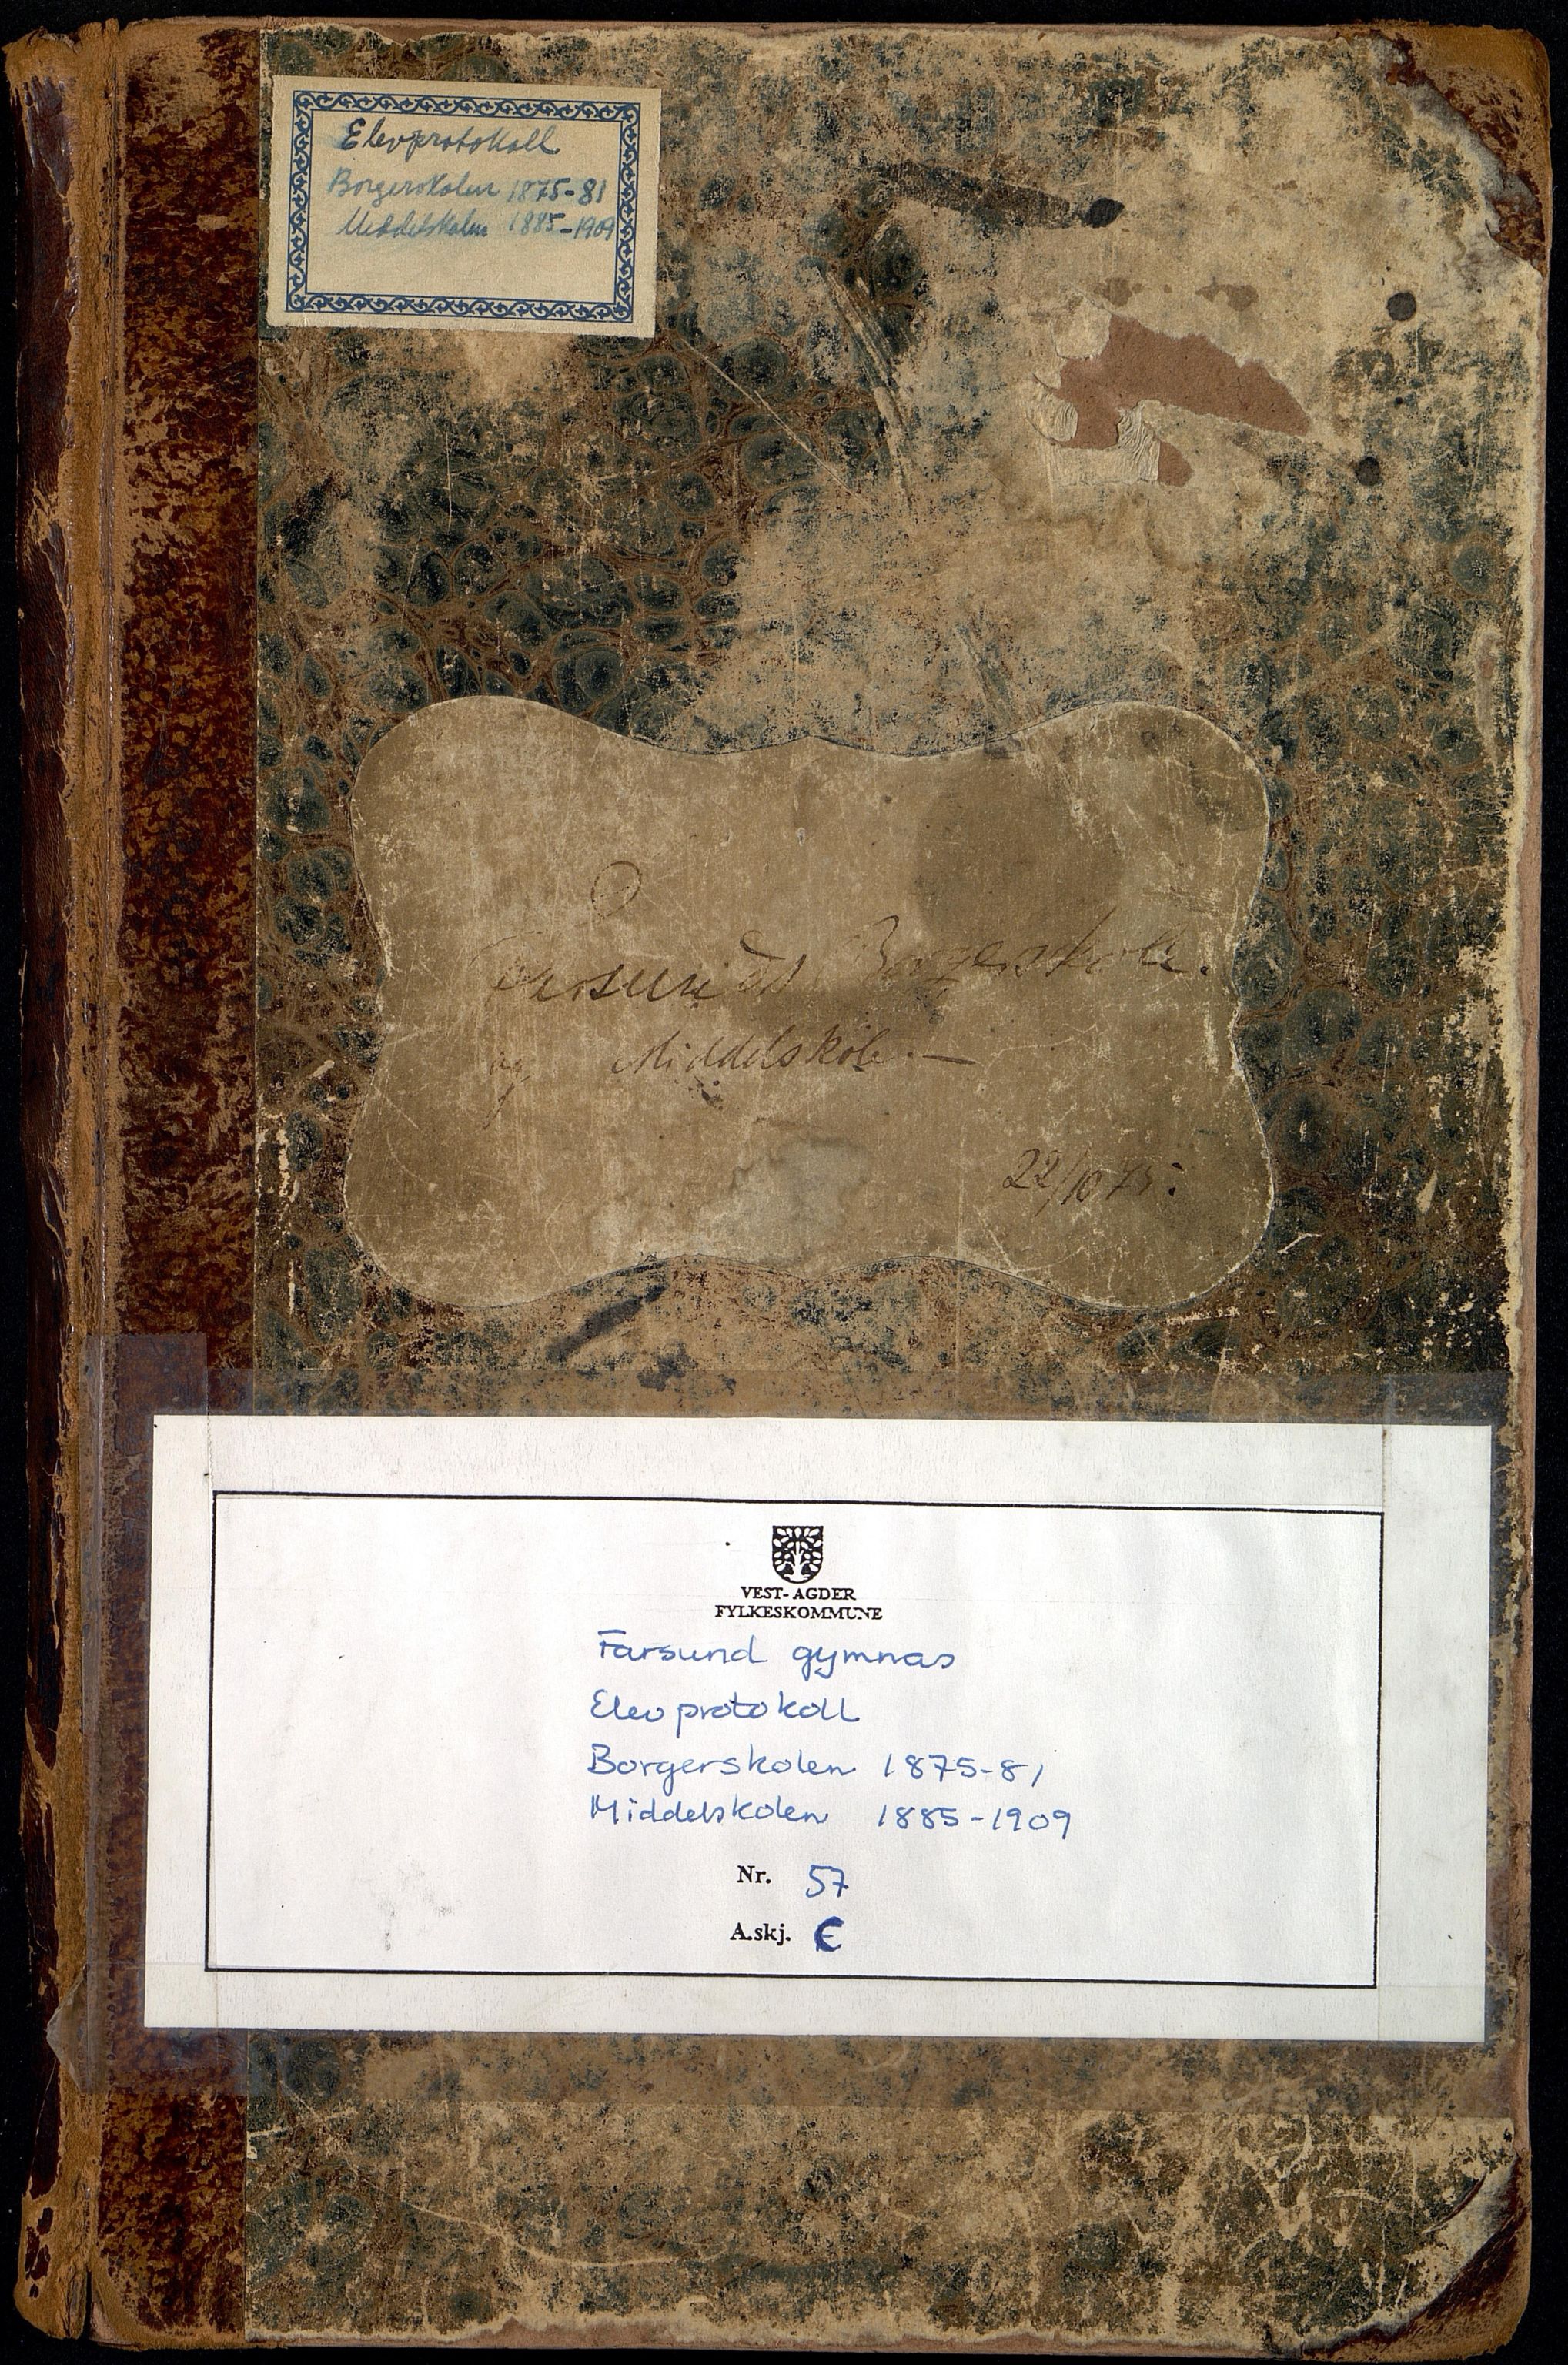 Elevprotokoll
Borgerskolen 1875-81
Middelskolen 1885-1909
Farsunds Borgerskole.
og Middelskole.—
22/10 75.
VEST-AGDER
FYLKESKOMMUNE
Farsund gymnas
Elevprotokoll
Borgerskolen 1875-81
Middelskolen 1885-1909
Nr. 57
A.skj. E